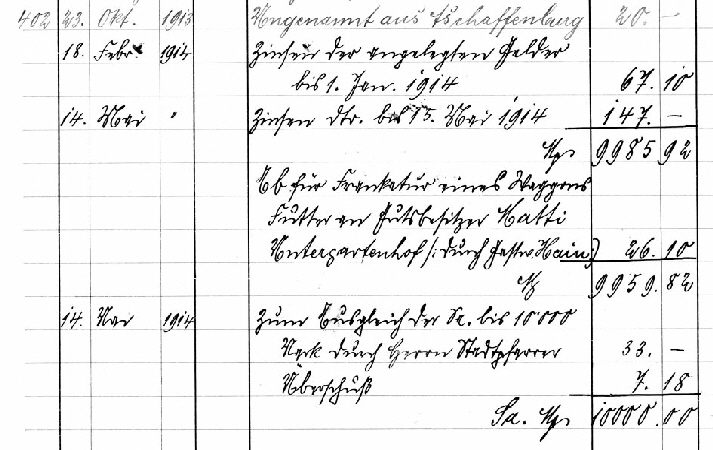 402 23. Okt. 1913 Ungenannt aus Aschaffenburg 20. –
18. Febr. 1914 Zinsen der angelegten Gelder
bis 1. Jan. 1914 67. 10
14. Mai " Zinsen dto. bis 15. Mai 1914 147. –
M 9985 92
Ab für Frankatur eines Waggons
Futter an Gutsbesitzer Matti
Untergartenhof /: durch Pastor Hain :/ 26. 10
M 9959. 82
14. Mai 1914 Zum Ausgleich der Sa. bis 10000
Mark durch Herrn Stadtpfarrer 33. –
Überschuß 7. 18
Sa. M 10000. 00